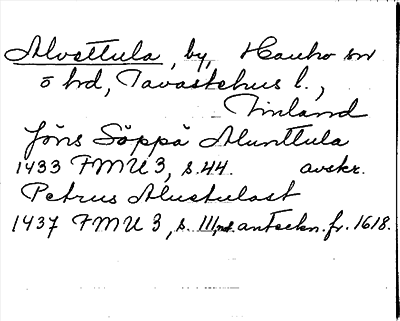 Alvettula, by, Hauho sn
ö hd, Tavastehus l.,
Finland
Jöns Söppä Alunttula
1433 FMU 3, s. 44. avskr.
Petrus Alustulast
1437 FMU 3, s. 111, anteckn. fr. 1618.